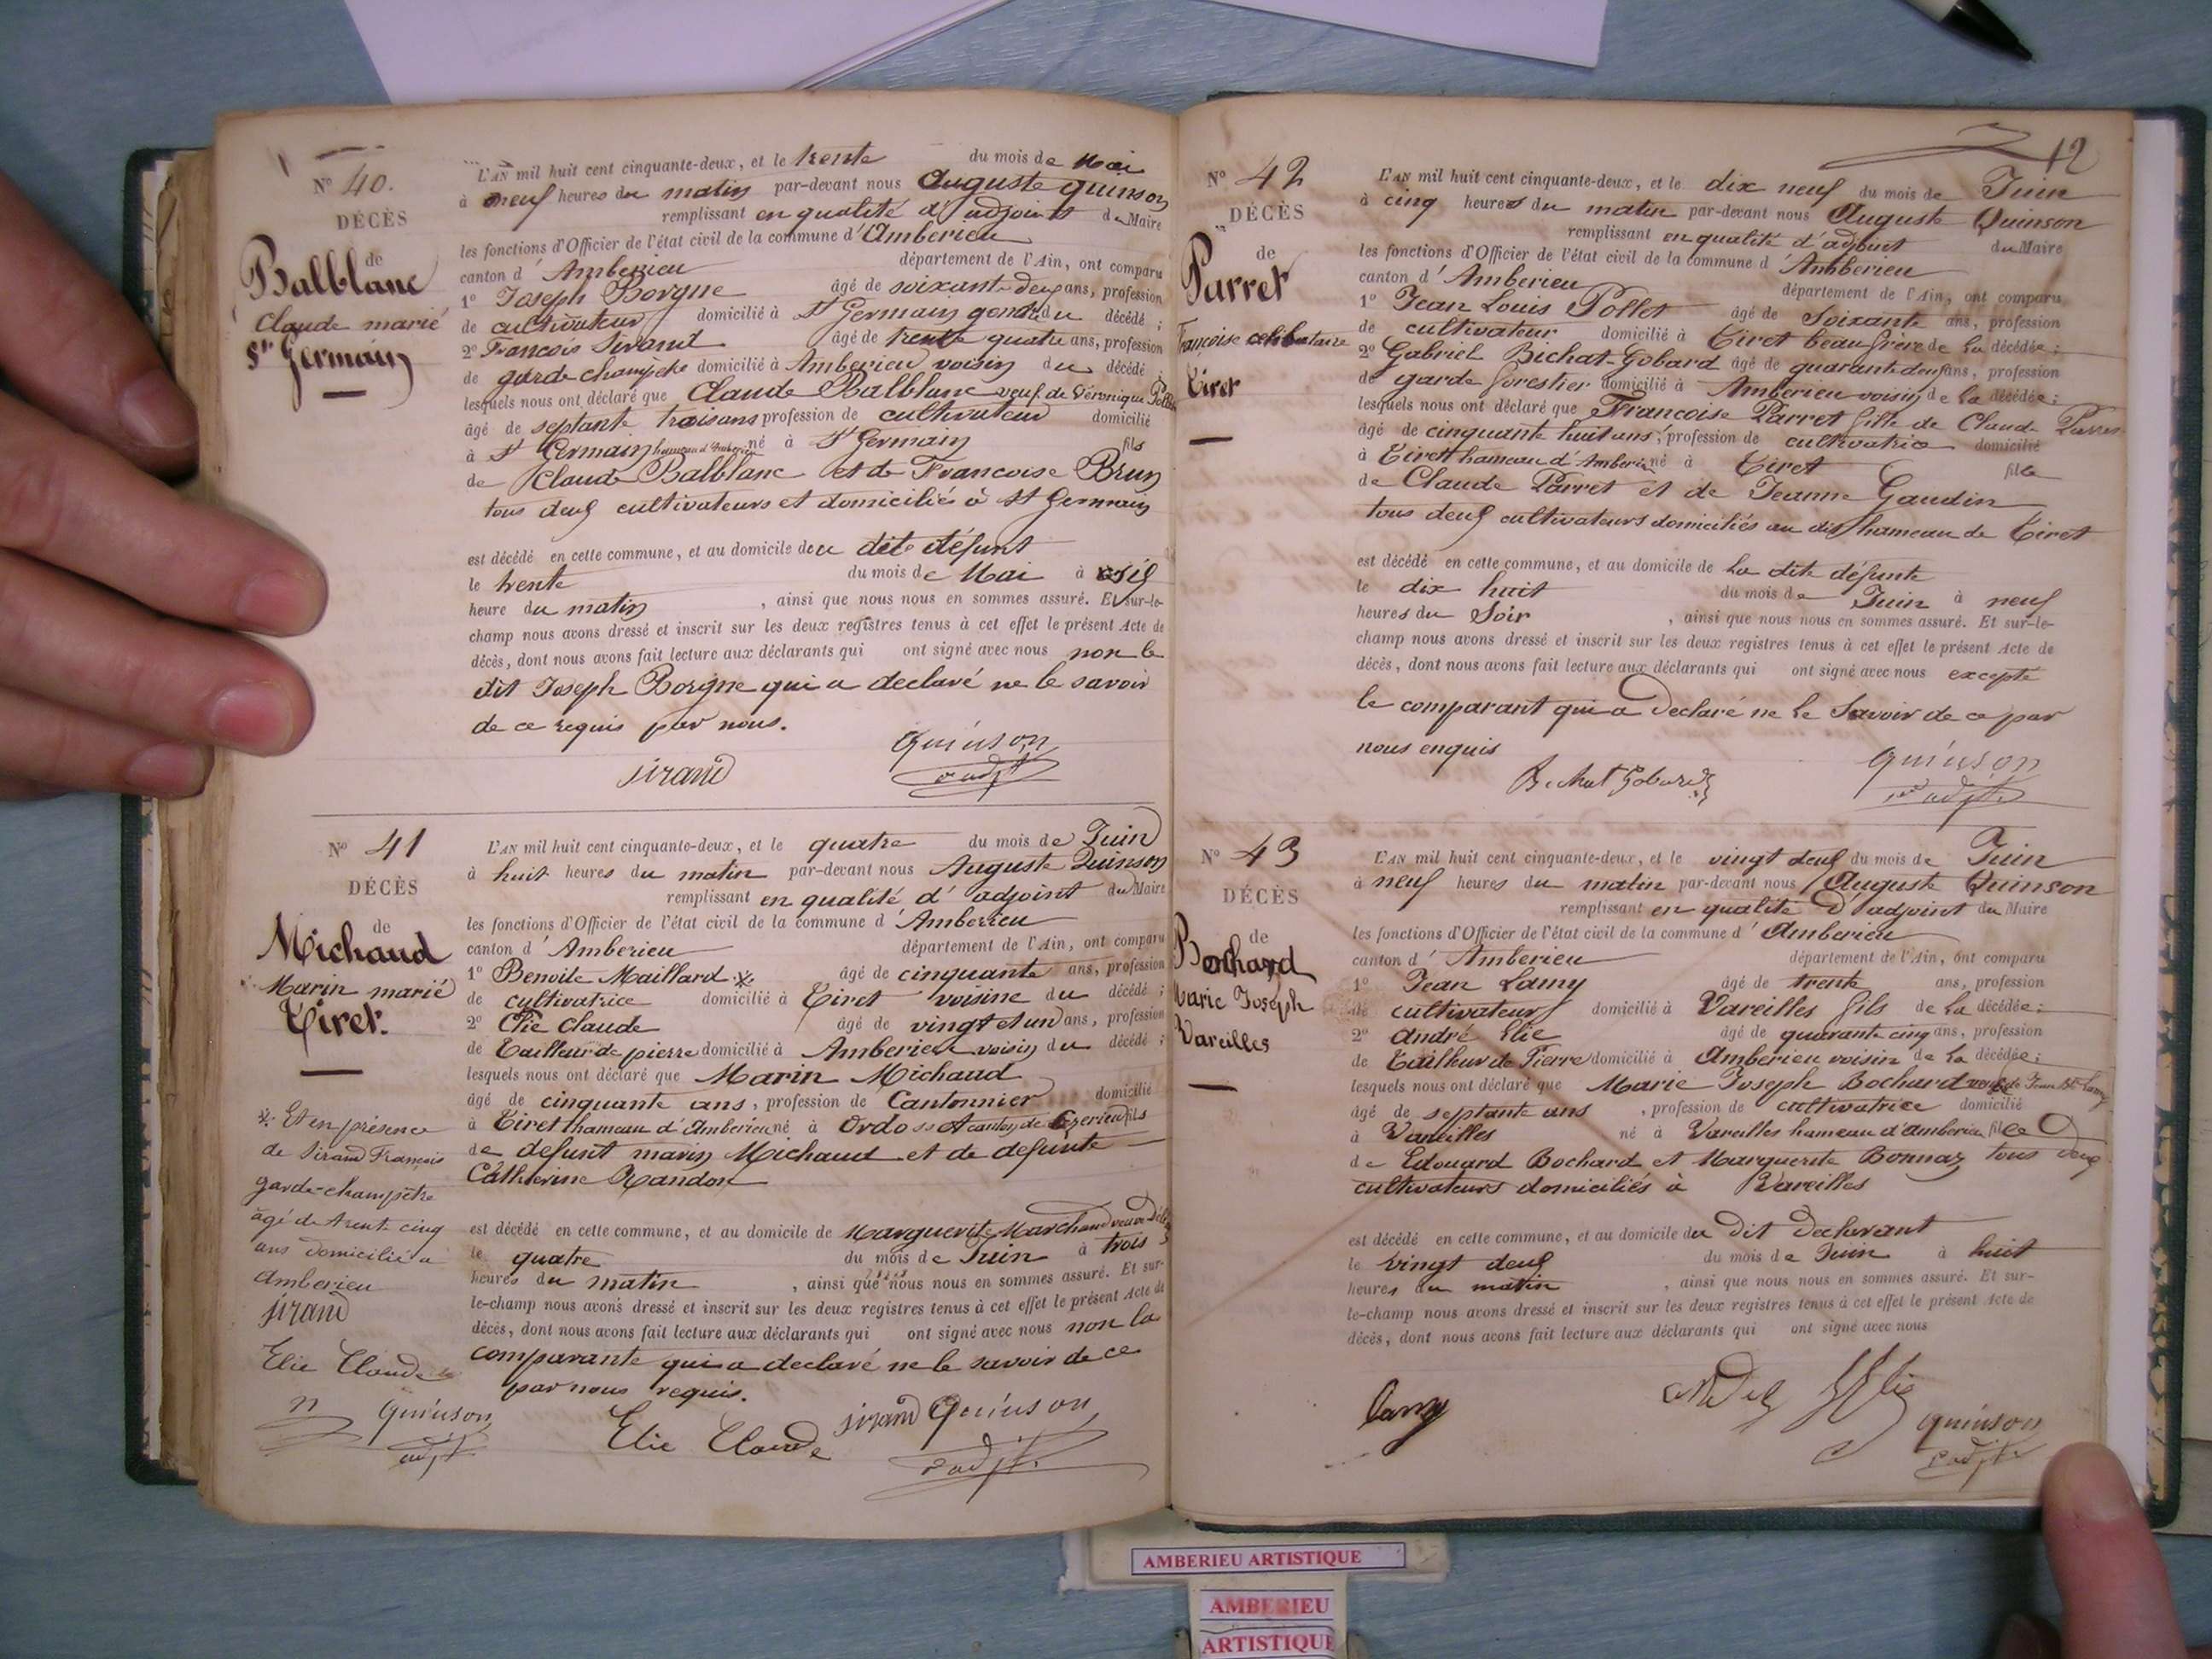 N° 40.
DÉCÈS
de
Balblanc
Claude marié
St Germain
L'AN mil huit cent cinquante-deux, et le trente du mois de Mai
à neuf heures du matin par-devant nous Auguste Quinson
remplissant en qualité d'adjoint du Maire
les fonctions d'Officier de l'état civil de la commune d'Amberieu
canton d'Amberieu département de l'Ain, ont comparu
1° Joseph Borgne âgé de soixante deux ans, profession
de cultivateur domicilié à St Germain gendre du décédé ;
2° Francois Sirand âgé de trente quatre ans, profession
de garde champêtre domicilié à Amberieu voisin du décédé ;
lesquels nous ont déclaré que Claude Balblanc veuf de Véronique
âgé de septante trois ans profession de cultivateur domicilié
à St Germain hameau d'Amberieu né à St Germain fils
de Claude Balblanc et de Francoise Brun
tous deux cultivateurs et domiciliés à St Germain
est décédé en cette commune, et au domicile du dit défunt
le trente du mois de Mai à six
heure du matin , ainsi que nous nous en sommes assuré. Et sur-le-
champ nous avons dressé et inscrit sur les deux registres tenus à cet effet le présent Acte de
décès, dont nous avons fait lecture aux déclarants qui ont signé avec nous non le
dit Joseph Borgne qui a declaré ne le savoir
de ce requis par nous.
Sirand Quinson
adjt
N° 41
DÉCÈS
de
Michaud
Marin marié
Tiret.
※ Et en présence
de Sirand François
garde-champêtre
âgé de trente cinq
ans domicilié à
Amberieu
Sirand
Elie Claude
Quinson
adjt
L'AN mil huit cent cinquante-deux, et le quatre du mois de Juin
à huit heures du matin par-devant nous Auguste Quinson
remplissant en qualité d'adjoint du Maire
les fonctions d'Officier de l'état civil de la commune d'Amberieu
canton d'Amberieu département de l'Ain, ont comparu
1° Benoite Maillard ※ âgé de cinquante ans, profession
de cultivatrice domicilié à Tiret voisine du décédé ;
2° Elie Claude âgé de vingt et un ans, profession
de Tailleur de pierre domicilié à Amberieu voisin du décédé ;
lesquels nous ont déclaré que Marin Michaud
âgé de cinquante ans, profession de Cantonnier domicilié
à Tiret hameau d'Amberieu né à Ordo canton de fils
de defunt marin Michaud et de defunte
Catherine Randon
est décédé en cette commune, et au domicile de Marguerite Marchand veuve
le quatre du mois de Juin à trois
heures du matin , ainsi que nous nous en sommes assuré. Et sur-
le-champ nous avons dressé et inscrit sur les deux registres tenus à cet effet le présent Acte de
décès, dont nous avons fait lecture aux déclarants qui ont signé avec nous non la
comparante qui a declaré ne le savoir de ce
par nous requis.
Elie Claude Sirand Quinson
adjt
12
N° 42
DÉCÈS
de
Parret
Françoise celibataire
Tiret
L'AN mil huit cent cinquante-deux, et le dix neuf du mois de Juin
à cinq heures du matin par-devant nous Auguste Quinson
remplissant en qualité d'adjoint du Maire
les fonctions d'Officier de l'état civil de la commune d'Amberieu
canton d'Amberieu département de l'Ain, ont comparu
1° Jean Louis Pollet âgé de Soixante ans, profession
de cultivateur domicilié à Tiret beau frère de la décédée ;
2° Gabriel Bichat-Gobard âgé de quarante deux ans, profession
de garde forestier domicilié à Amberieu voisin de la décédée ;
lesquels nous ont déclaré que Francoise Parret fille de Claude Parret
âgé de cinquante huit ans, profession de cultivatrice domicilié
à Tiret hameau d'Amberieu né à Tiret fille
de Claude Parret et de Jeanne Gaudin
tous deux cultivateurs domiciliés au dit hameau de Tiret
est décédé en cette commune, et au domicile de la dite défunte
le dix huit du mois de Juin à neuf
heures du Soir , ainsi que nous nous en sommes assuré. Et sur-le-
champ nous avons dressé et inscrit sur les deux registres tenus à cet effet le présent Acte de
décès, dont nous avons fait lecture aux déclarants qui ont signé avec nous excepté
le comparant qui a Declaré ne le Savoir de ce par
nous enquis
Bichat Gobard Quinson
adjt
N° 43
DÉCÈS
de
Bochard
Marie Joseph
Vareilles
L'AN mil huit cent cinquante-deux, et le vingt deux du mois de Juin
à neuf heures du matin par-devant nous Auguste Quinson
remplissant en qualité d'adjoint du Maire
les fonctions d'Officier de l'état civil de la commune d'Amberieu
canton d'Amberieu département de l'Ain, ont comparu
1° Jean Lamy âgé de trente ans, profession
de cultivateur domicilié à Vareilles fils de la décédée ;
2° André Elie âgé de quarante cinq ans, profession
de Tailleur de Pierre domicilié à Amberieu voisin de la décédée ;
lesquels nous ont déclaré que Marie Joseph Bochard veuve de Jean Bte Lamy
âgé de septante ans , profession de cultivatrice domicilié
à Vareilles né à Vareilles hameau d'Amberieu fille
de Edouard Bochard et Marguerite Bonnaz tous deux
cultivateurs domiciliés à Vareilles
est décédé en cette commune, et au domicile du dit Déclarant
le vingt deux du mois de Juin à huit
heures du matin , ainsi que nous nous en sommes assuré. Et sur-
le-champ nous avons dressé et inscrit sur les deux registres tenus à cet effet le présent Acte de
décès, dont nous avons fait lecture aux déclarants qui ont signé avec nous
Lamy Elie Quinson
adjt
AMBERIEU ARTISTIQUE
AMBERIEU
ARTISTIQUE